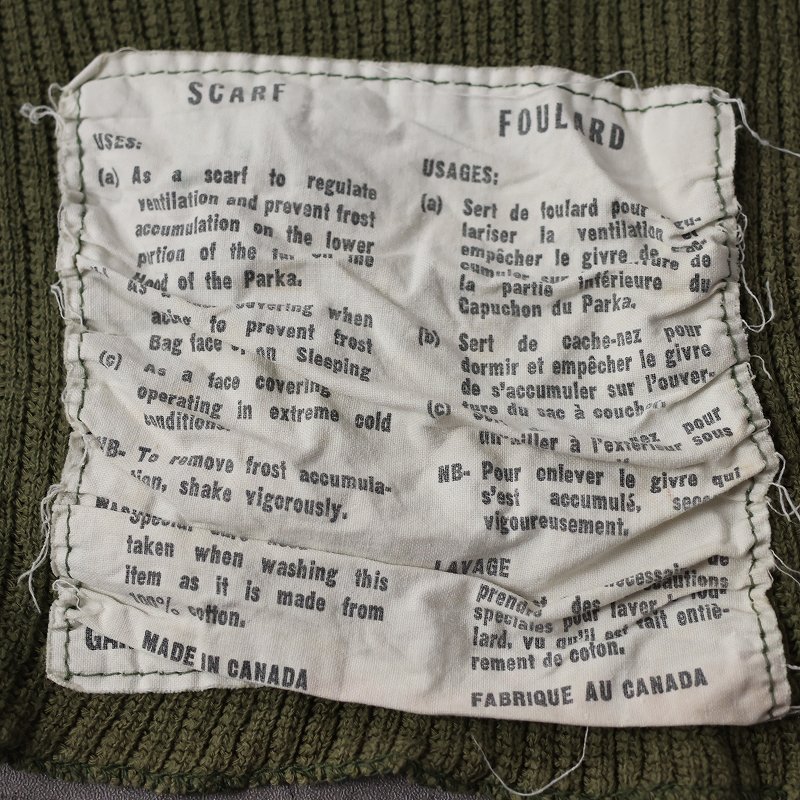 SCARF
USES:
(a) As a scarf to regulate
ventilation and prevent frost
accumulation on the lower
portion of the fur on the
Hood of the Parka.
covering when
to prevent frost
Bag face Sleeping
(c) As a face covering
operating in extreme cold
conditions.
NB- To remove frost accumula-
tion, shake vigorously.
Special care
taken when washing this
item as it is made from
100% cotton.
MADE IN CANADA
FOULARD
USAGES:
(a) Sert de foulard pour
lariser la ventilation
empêcher le givre de
cumuler sur
la partie inférieure du
Capuchon du Parka.
(b) Sert de cache-nez pour
dormir et empêcher le givre
de s'accumuler sur l'ouver-
(c) ture du sac à coucher
nez pour
à l'extérieur sous
NB- Pour enlever le givre qui
s'est accumulé,
vigoureusement.
LAVAGE
nécessaire de
prendre des précautions
spéciales pour laver
lard, vu qu'il est fait entiè-
rement de coton.
FABRIQUE AU CANADA